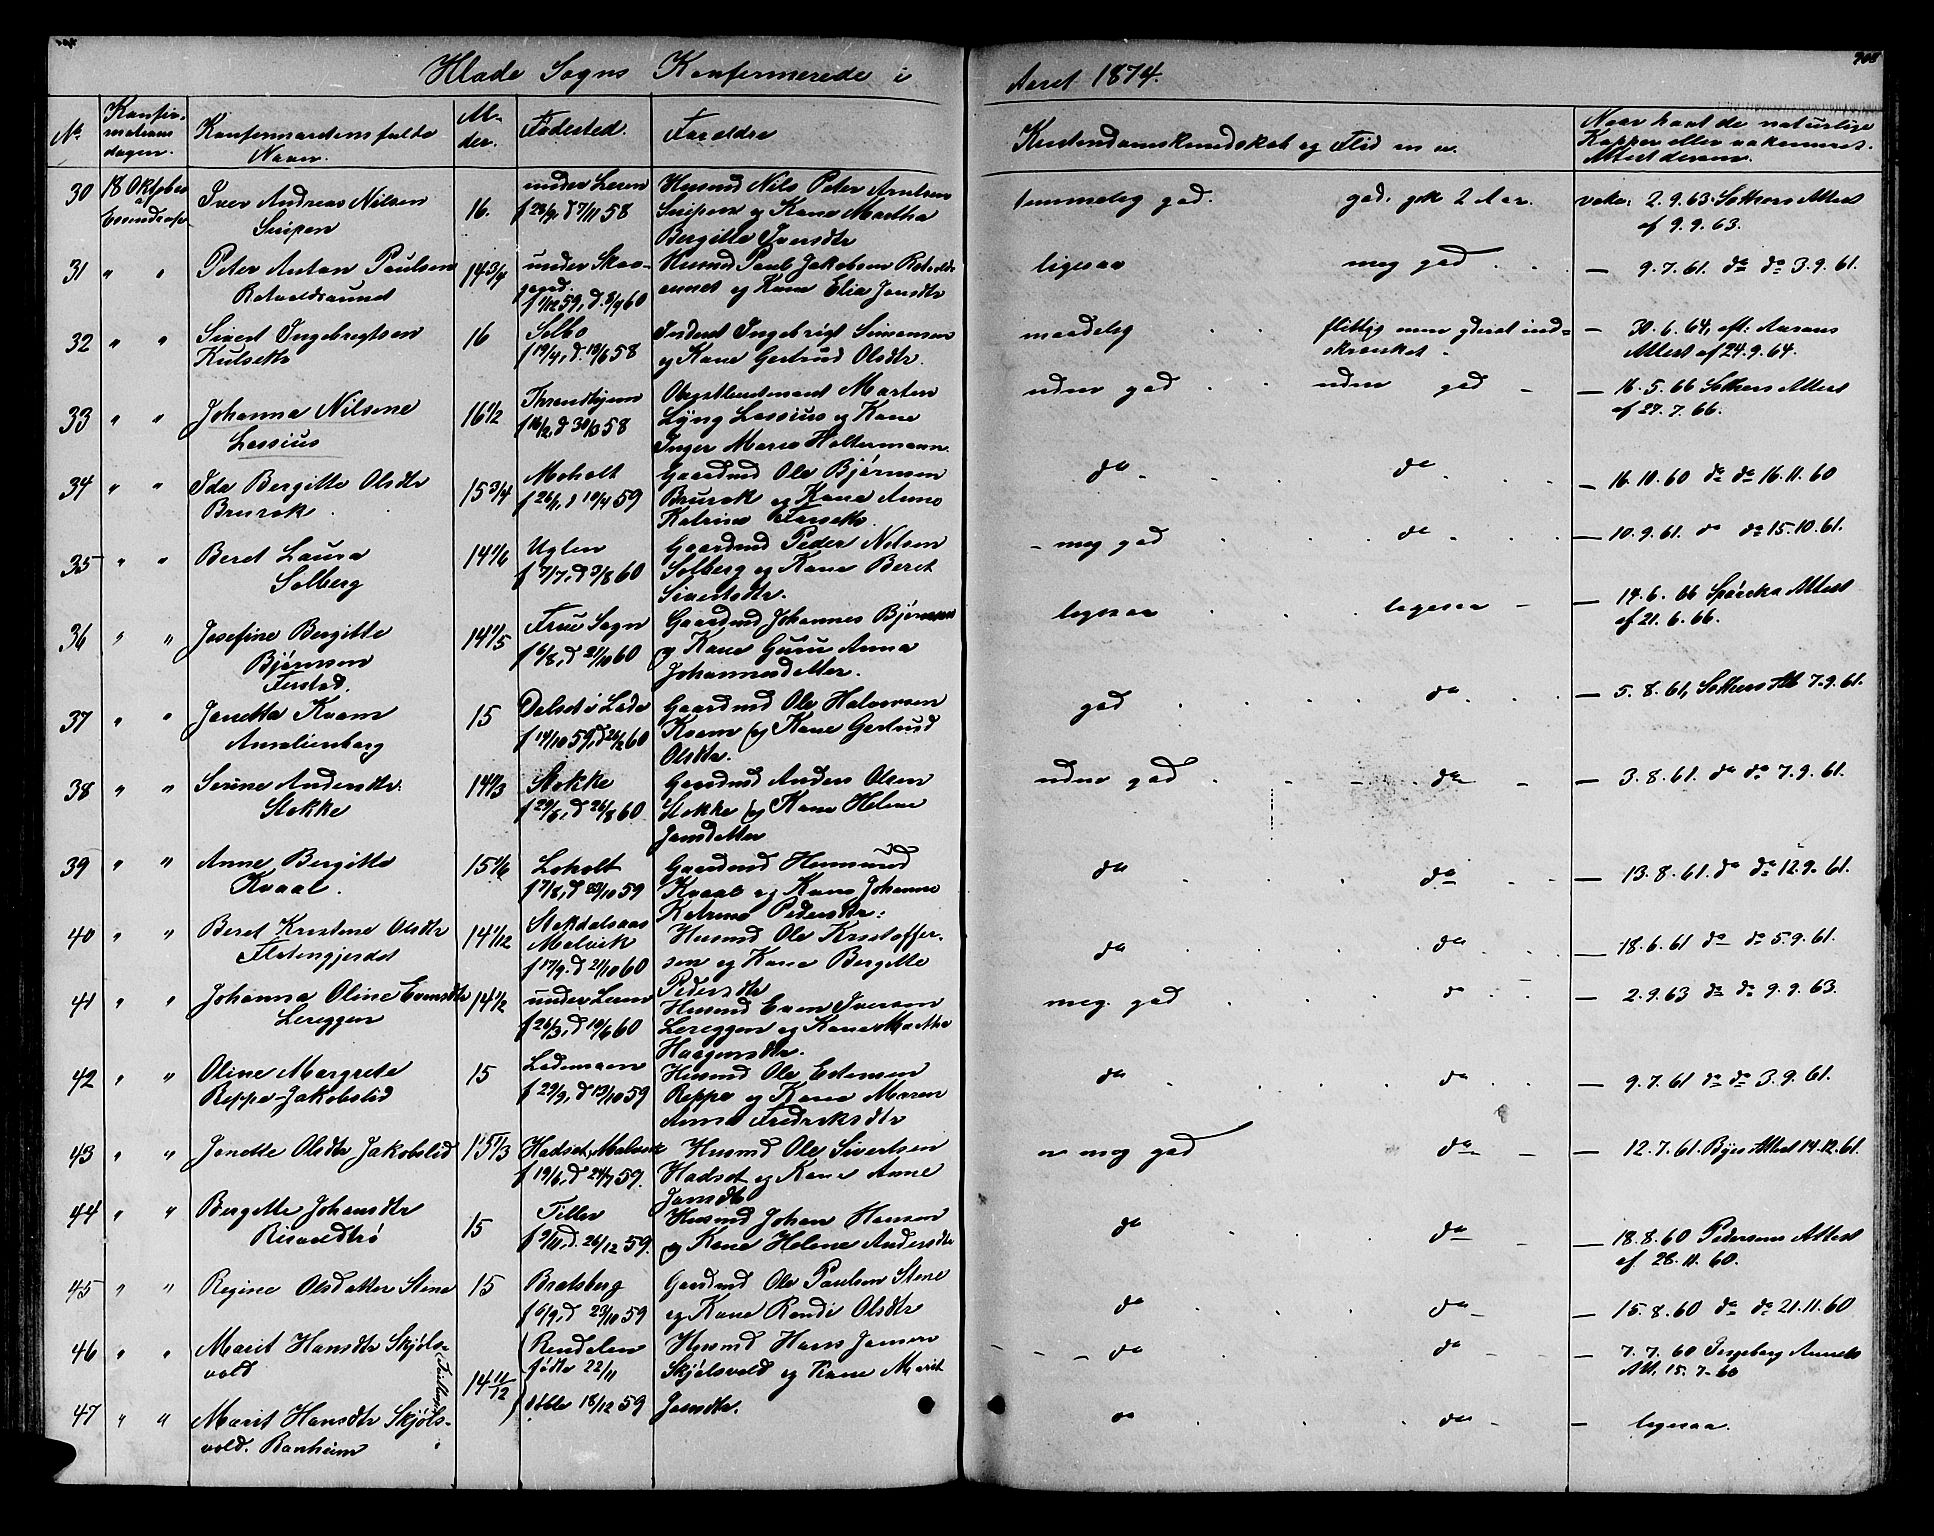 Hlade Sogns Konfirmerede i Aaret 1874.
No
Konfir-
mations
dagen.
Konfirmandens fulde
Navn.
Al-
der.
Fødested.
Forældre
Kristendomskundskab og Flid m. v.
Naar havt de naturlige
Kopper eller vakcineret.
Attest derom.
30 18 Oktober
Iver Andreas Nilsen
16.
under Leren
f 28/9, d 7/11 58
Husmd Nils Peter Arntsen
og Kone Martha
Bergitte Iversdtr
temmelig god. god. gik 2 Aar.
vakc: 2.9.63. Attest
af 9.9.63.
31 " "
Peter Anton Paulsen
14 3/4
under Skov-
gaard.
Husmd Paul Jakobsen
og Kone Jonsdtr
ligesaa meg god
— 9.7.61. do do 3.9.61.
32 " "
Sivert Ingebrigtsen
Kulseth
16
Selbo
f 19/4, d. 13/6 58
Inderst Ingebrigt Simonsen
og Kone Gertrud Olsdtr.
maadelig flittig men ind-
skrænket.
— 30.6.64, eft:
Attest af 24.9.64.
33 " "
Johanna Nilsine
Lossius
16 1/2
Throndhjem
f 16/2, d 30/3 58
Oberstleutenant Morten
Lyng Lossius og Kone
Inger Marie Holtermann.
udm god udm god
— 16.5.66 Attest
af 27.7.66.
34 " "
Ida Bergitte Olsdtr
Brurok.
15 3/4
Moholt
f 26/1, d 10/4 59
Gaardmd Ole Bjørnsen
Brurok og Kone Anne
Katrine
do do
— 16.10.60 do do 16.11.60
35 " "
Beret Laura
Solberg
14 1/6
Uglen
Gaardmd Peder Nilsen
Solberg og Kone Beret
Sivertsdtr.
meg god do
— 10.9.61. do do 15.10.61.
36 " "
Josefine Bergitte
Bjørnsen
Ferstad.
14 1/5
Frue Sogn
f 6/8, d 21/10 60
Gaardmd Johannes Bjørnsen
og Kone Guru Anna
Johannesdatter.
ligesaa ligesaa
— 14.6.66 Attest
af 21.6.66.
37 " "
Jonetta Kvam
Amalienborg
15
f 14/10 59, d 26/2 60
Gaardmd Ole Halvorsen
Kvam og Kone Gertrud
Olsdtr.
god do
— 5.8.61, 7.9.61.
38 " "
Serine Andersdtr.
Stokke
14 1/3
Stokke
f 29/6, d 26/8 60
Gaardmd Anders Olsen
Stokke og Kone Helene
Jonsdatter
udm god do
— 3.8.61. do do 7.9.61.
39 " "
Anne Bergitte
Kvaal.
15 1/6
Loholt
f 17/8, d 23/10 59
Gaardmd
Kvaal og Kone Johanna
Katrine Pedersdtr.
do do
— 13.8.61. do do 12.9.61.
40 " "
Beret Kristine Olsdtr
Flatengjerdet
14 1/12
Stokdalsaas
Malvik
f 17/9. d 21/10 60
Husmd Ole Kristoffer-
sen og Kone Bergitte
Pedersdtr
do do
— 18.6.61 do do 5.9.61.
41 " "
Johanna Oline Evensdtr
Lereggen
14 1/2
under Leren
f 26/3, d 10/6 60
Husmd Even Iversen
Lereggen og Kone Martha
Haagensdtr.
meg. god do
— 2.9.63 do do 9.9.63.
42 " "
Oline Margrete
Reppe-Jakobslid
15
Lademoen
f 29/9, d 13/10 59
Husmd Ole Estensen
Reppe og Kone Maren
Anna Fredriksdtr
do do
— 9.7.61 do do 3.9.61.
43 " "
Jonette Olsdtr Jakobslid
15 1/3
Hadset, Malvik
f 19/6, d 24/7 59.
Husmd Ole Sivertsen
Hadset og Kone Anne
Jonsdtr
meg god do
— 12.7.61. Byes Attest 14.12.61.
44 " "
Bergitte Johansdtr
Risvoldtrø
15
Tiller
f 9/11, d. 26/12 59.
Husmd Johan Hansen
og Kone Helene Andersdtr
do do
— 18.8.60 Pedersens Attest
af 28.11.60.
45 " "
Regine Olsdatter Stene
15
Bratsberg
f 6/9, d 23/10 59
Gaardmd Ole Paulsen Stene
og Kone Randi Olsdtr
do do
— 15.8.60 do do 21.11.60
46 " "
Marit Hansdtr Skjøls-
vold
Tvillinger
14 11/12
Rendalen
fødte 22/11
døbte 18/12 59
Husmd Hans Jonsen
Skjølsvold og Kone Marit
Jonsdtr.
do do
— 7.7.60 Ingeborg
Att. 15.7.60
47 " "
Marit Hansdtr Skjøls-
vold. Ranheim
do do
— ligesaa.